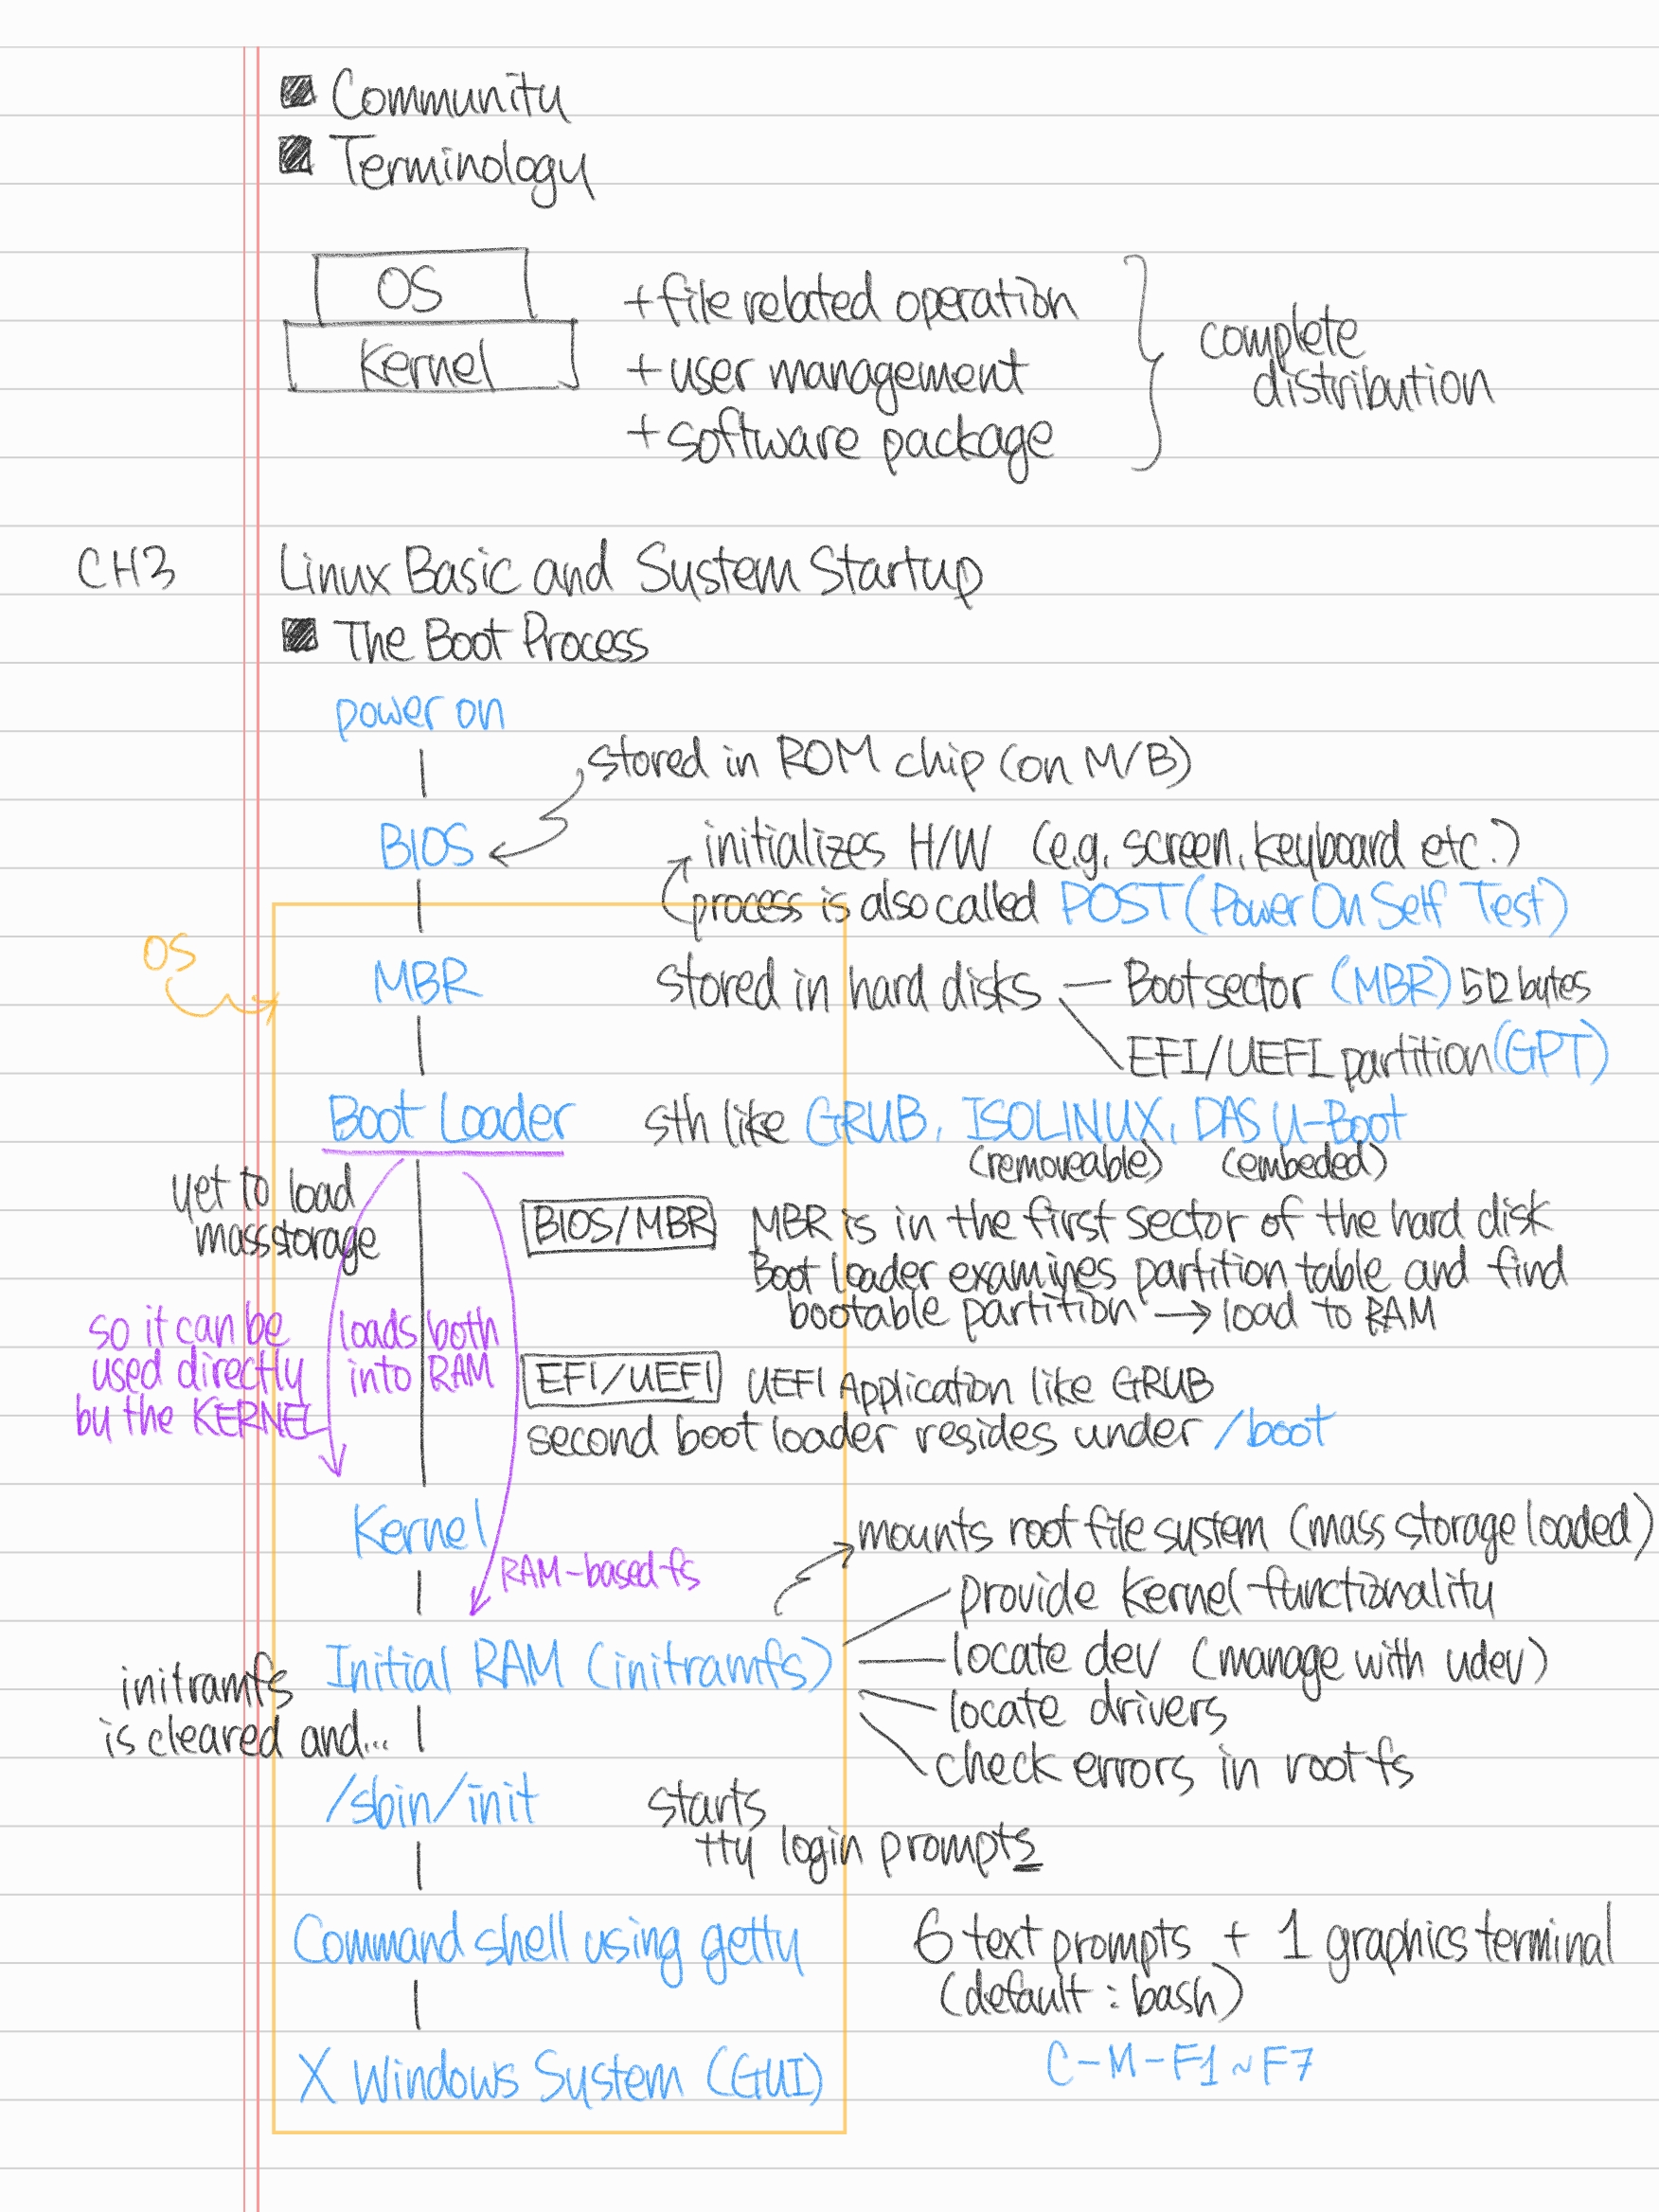 Community
Terminology
OS
Kernel
+ file related operation
+ user management
+ software package
complete
distribution
CH3
Linux Basic and System Startup
The Boot Process
power on
stored in ROM chip (on M/B)
BIOS
initializes H/W (e.g. screen, keyboard etc.)
process is also called POST (Power On Self Test)
OS
MBR
stored in hard disks
Boot sector (MBR) 512 bytes
EFI/UEFI partition (GPT)
Boot Loader
sth like GRUB, ISOLINUX, DAS U-Boot
(removeable) (embeded)
yet to load
mass storage
BIOS/MBR MBR is in the first sector of the hard disk
Boot loader examines partition table and find
bootable partition → load to RAM
so it can be
used directly
by the KERNEL
loads both
into RAM
EFI/UEFI UEFI Application like GRUB
second boot loader resides under /boot
Kernel
RAM-based fs
mounts root file system (mass storage loaded)
provide kernel functionality
Initial RAM (initramfs)
locate dev (manage with udev)
locate drivers
check errors in root fs
initramfs
is cleared and...
/sbin/init
starts
tty login prompts
Command shell using getty
6 text prompts + 1 graphics terminal
(default : bash)
X Windows System (GUI)
C-M-F1~F7